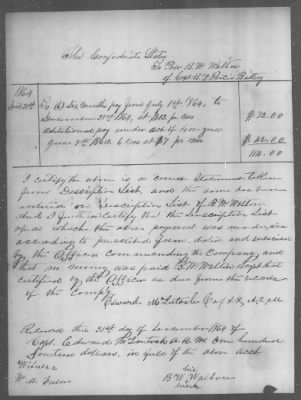 The Confederate States
To Priv B. W. Walton
of Capt H. Price's Battery
1864
Decr 31st
To (6) Six months pay from July 1st 1864, to
December 31st 1864, at $12 pr mo
$ 72.00
additional pay under act of Congress
June 9th 1864. 6 mo at $7 pr mo
$ 42.00
114.00
I certify the above is a correct Statement taken
from Descriptive List, and the same has been
entered on Descriptive List of B. W. Walton.
And I further certify that the Descriptive List
upon which the above payment was made, was
according to prescribed form, dated and endorsed
by the Officer commanding the Company and
that no money was paid B. W. Walton except that
certified by the Officer as due from the records
of the Company
Edward McIntosh Capt & A. Q. M
Received this 31st day of December 1864 of
Capt. Edward McIntosh A. Q. M. One hundred
fourteen dollars, in full of the above acct
Witness
W. M.
B. W. Walton
his
mark